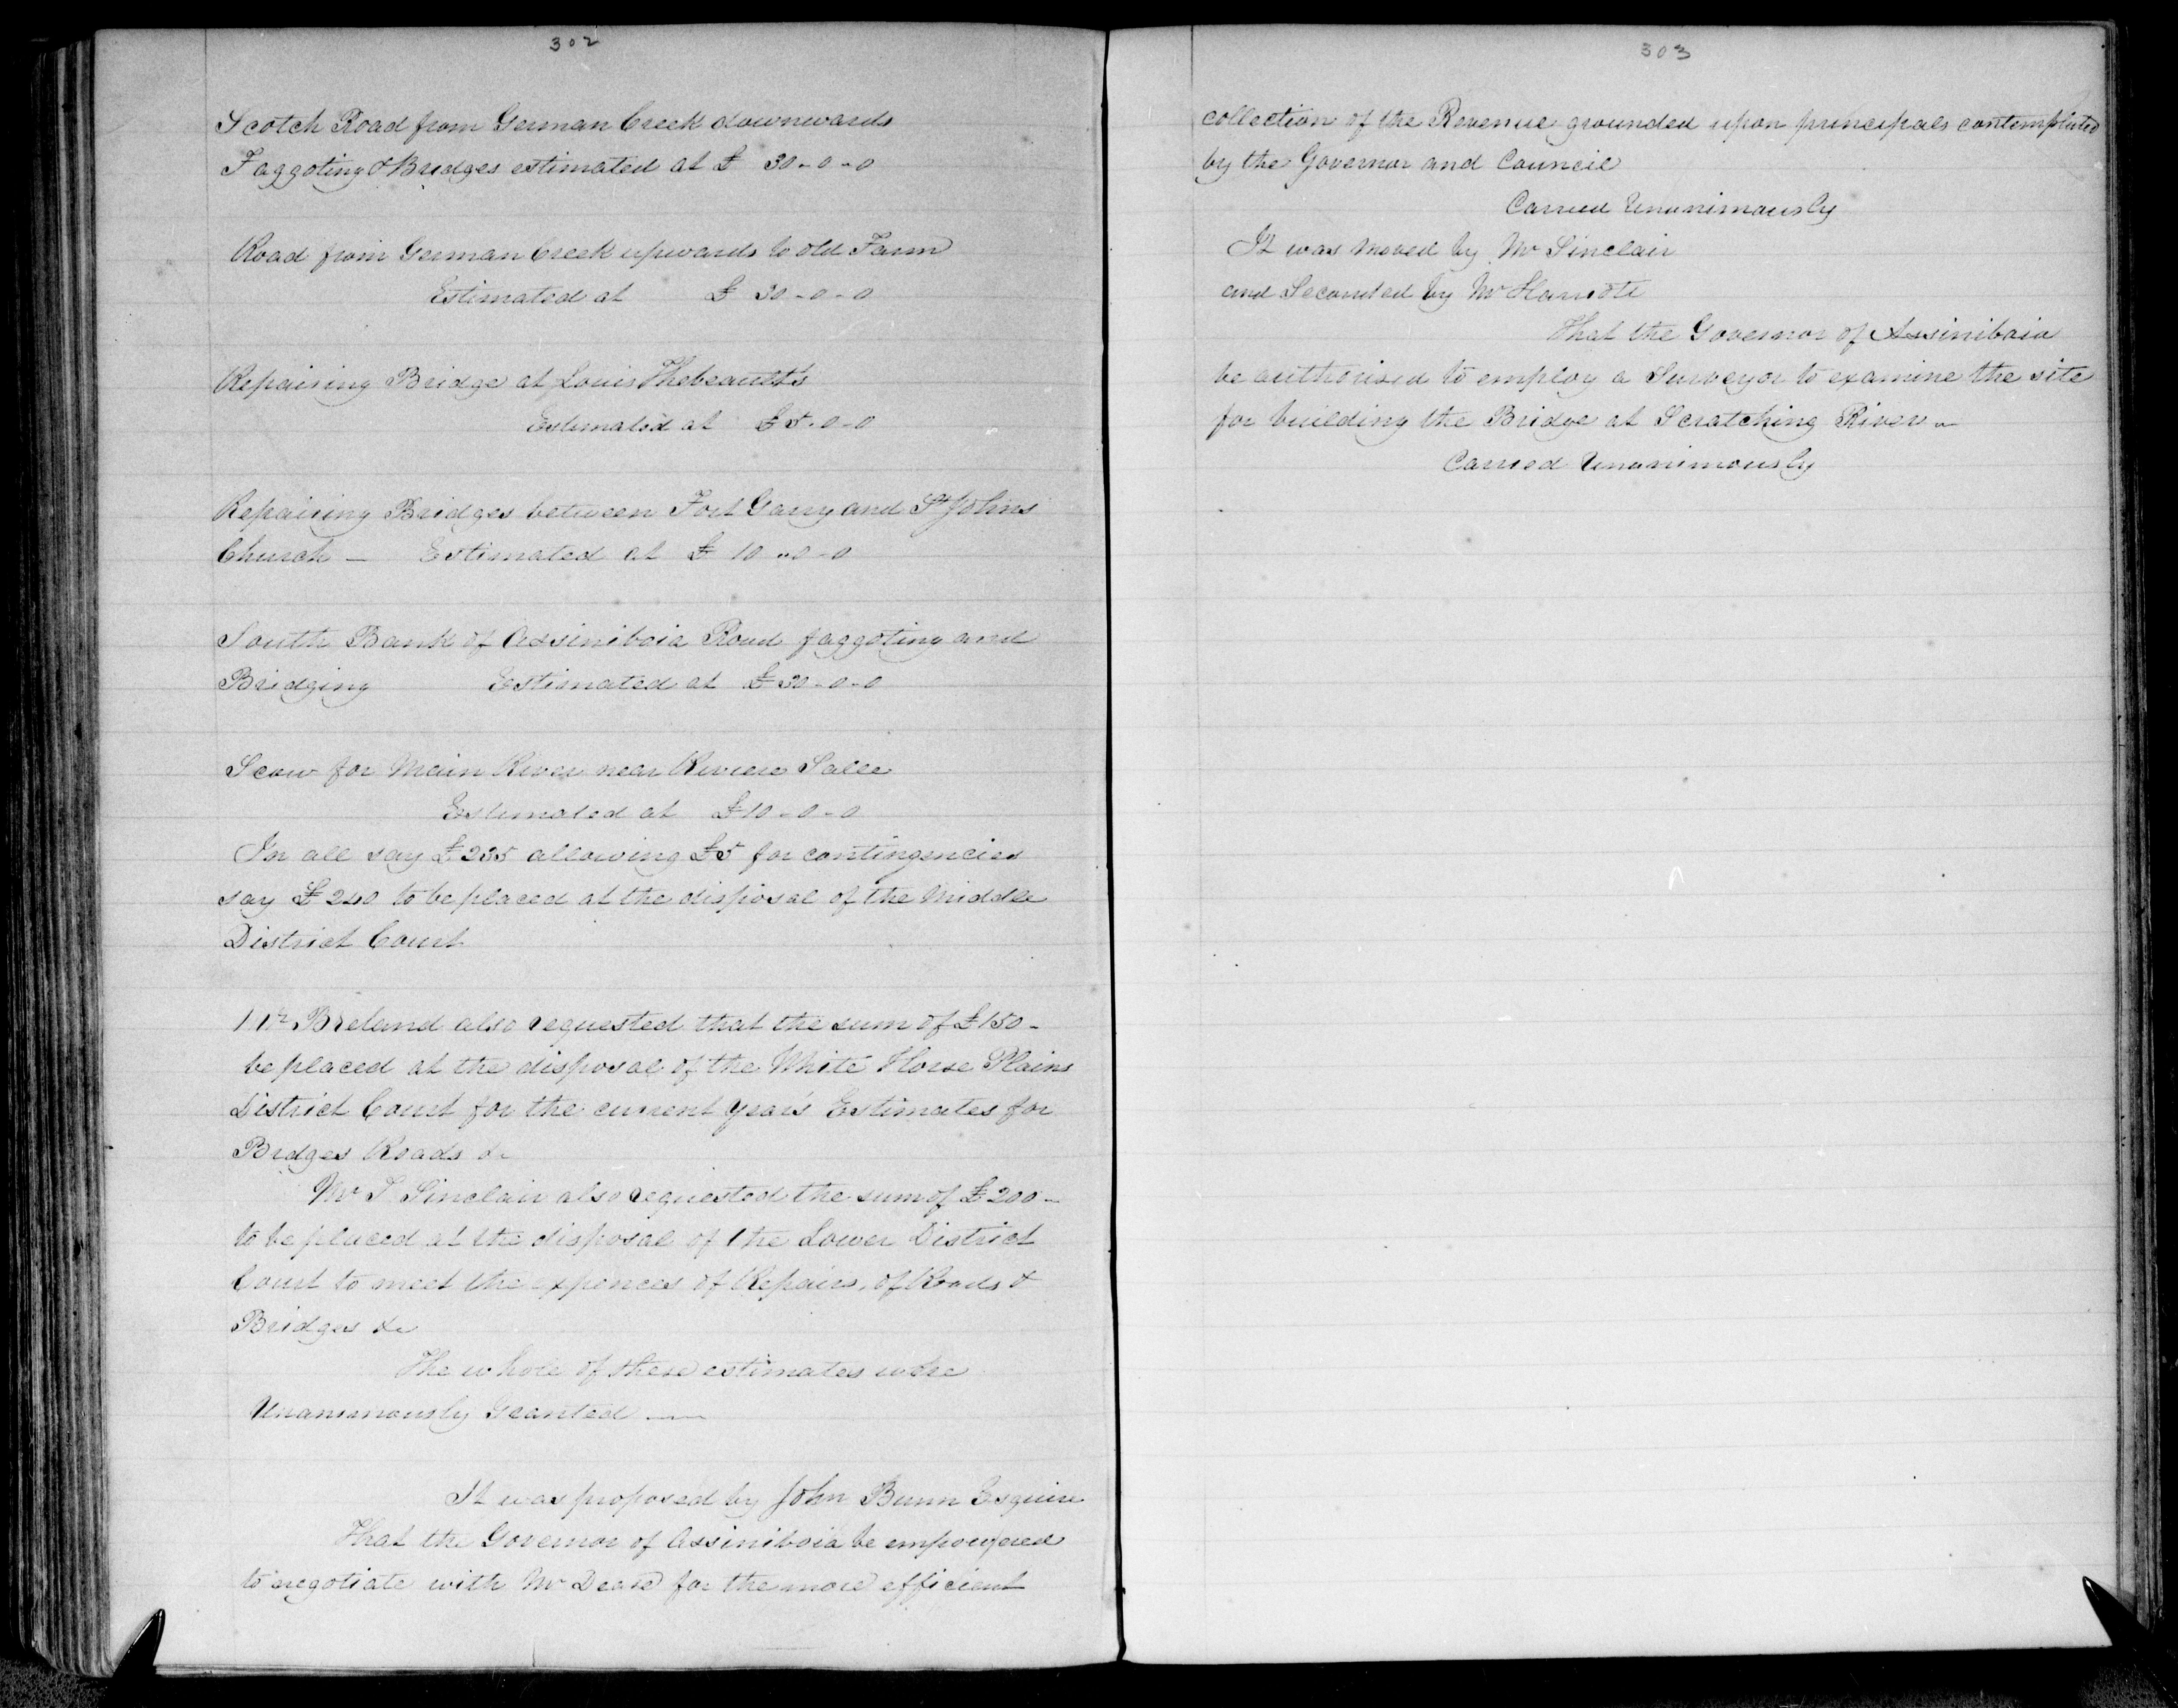 302
Scotch Road from German Creek downwards
Faggoting & Bridges estimated at £ 30-0-0
Road from German Creek upwards to old Farm
Estimated at £ 30-0-0
Repairing Bridge at Louis Thebeault's
Estimated at £5-0-0
Repairing Bridges between Fort Garry and St Johns
Church — Estimated at £ 10-0-0
South Bank of Assiniboia Road faggoting and
Bridging Estimated at £30-0-0
Scow for Main River near Riviere Salle
Estimated at £10-0-0
In all say £235 allowing £5 for contingencies
say £240 to be placed at the disposal of the Middle
District Court
Mr Breland also requested that the sum of £150-
be placed at the disposal of the White Horse Plains
District Court for the current year's Estimates for
Bridges Roads &c
Mr T Sinclair also requested the sum of £200-
to be placed at the disposal of the Lower District
Court to meet the expences of Repairs, of Roads &
Bridges &c
The whole of these estimates were
Unanimously Granted —
It was proposed by John Bunn Esquire
That the Governor of Assiniboia be empowered
to negotiate with Mr Dease for the more efficient
303
collection of the Revenue grounded upon principals contemplated
by the Governor and Council
Carried Unanimously
It was Moved by Mr Sinclair
and Seconded by Mr
That the Governor of Assiniboia
be authorised to employ a Surveyor to examine the site
for building the Bridge at Scratching River -
Carried Unanimously